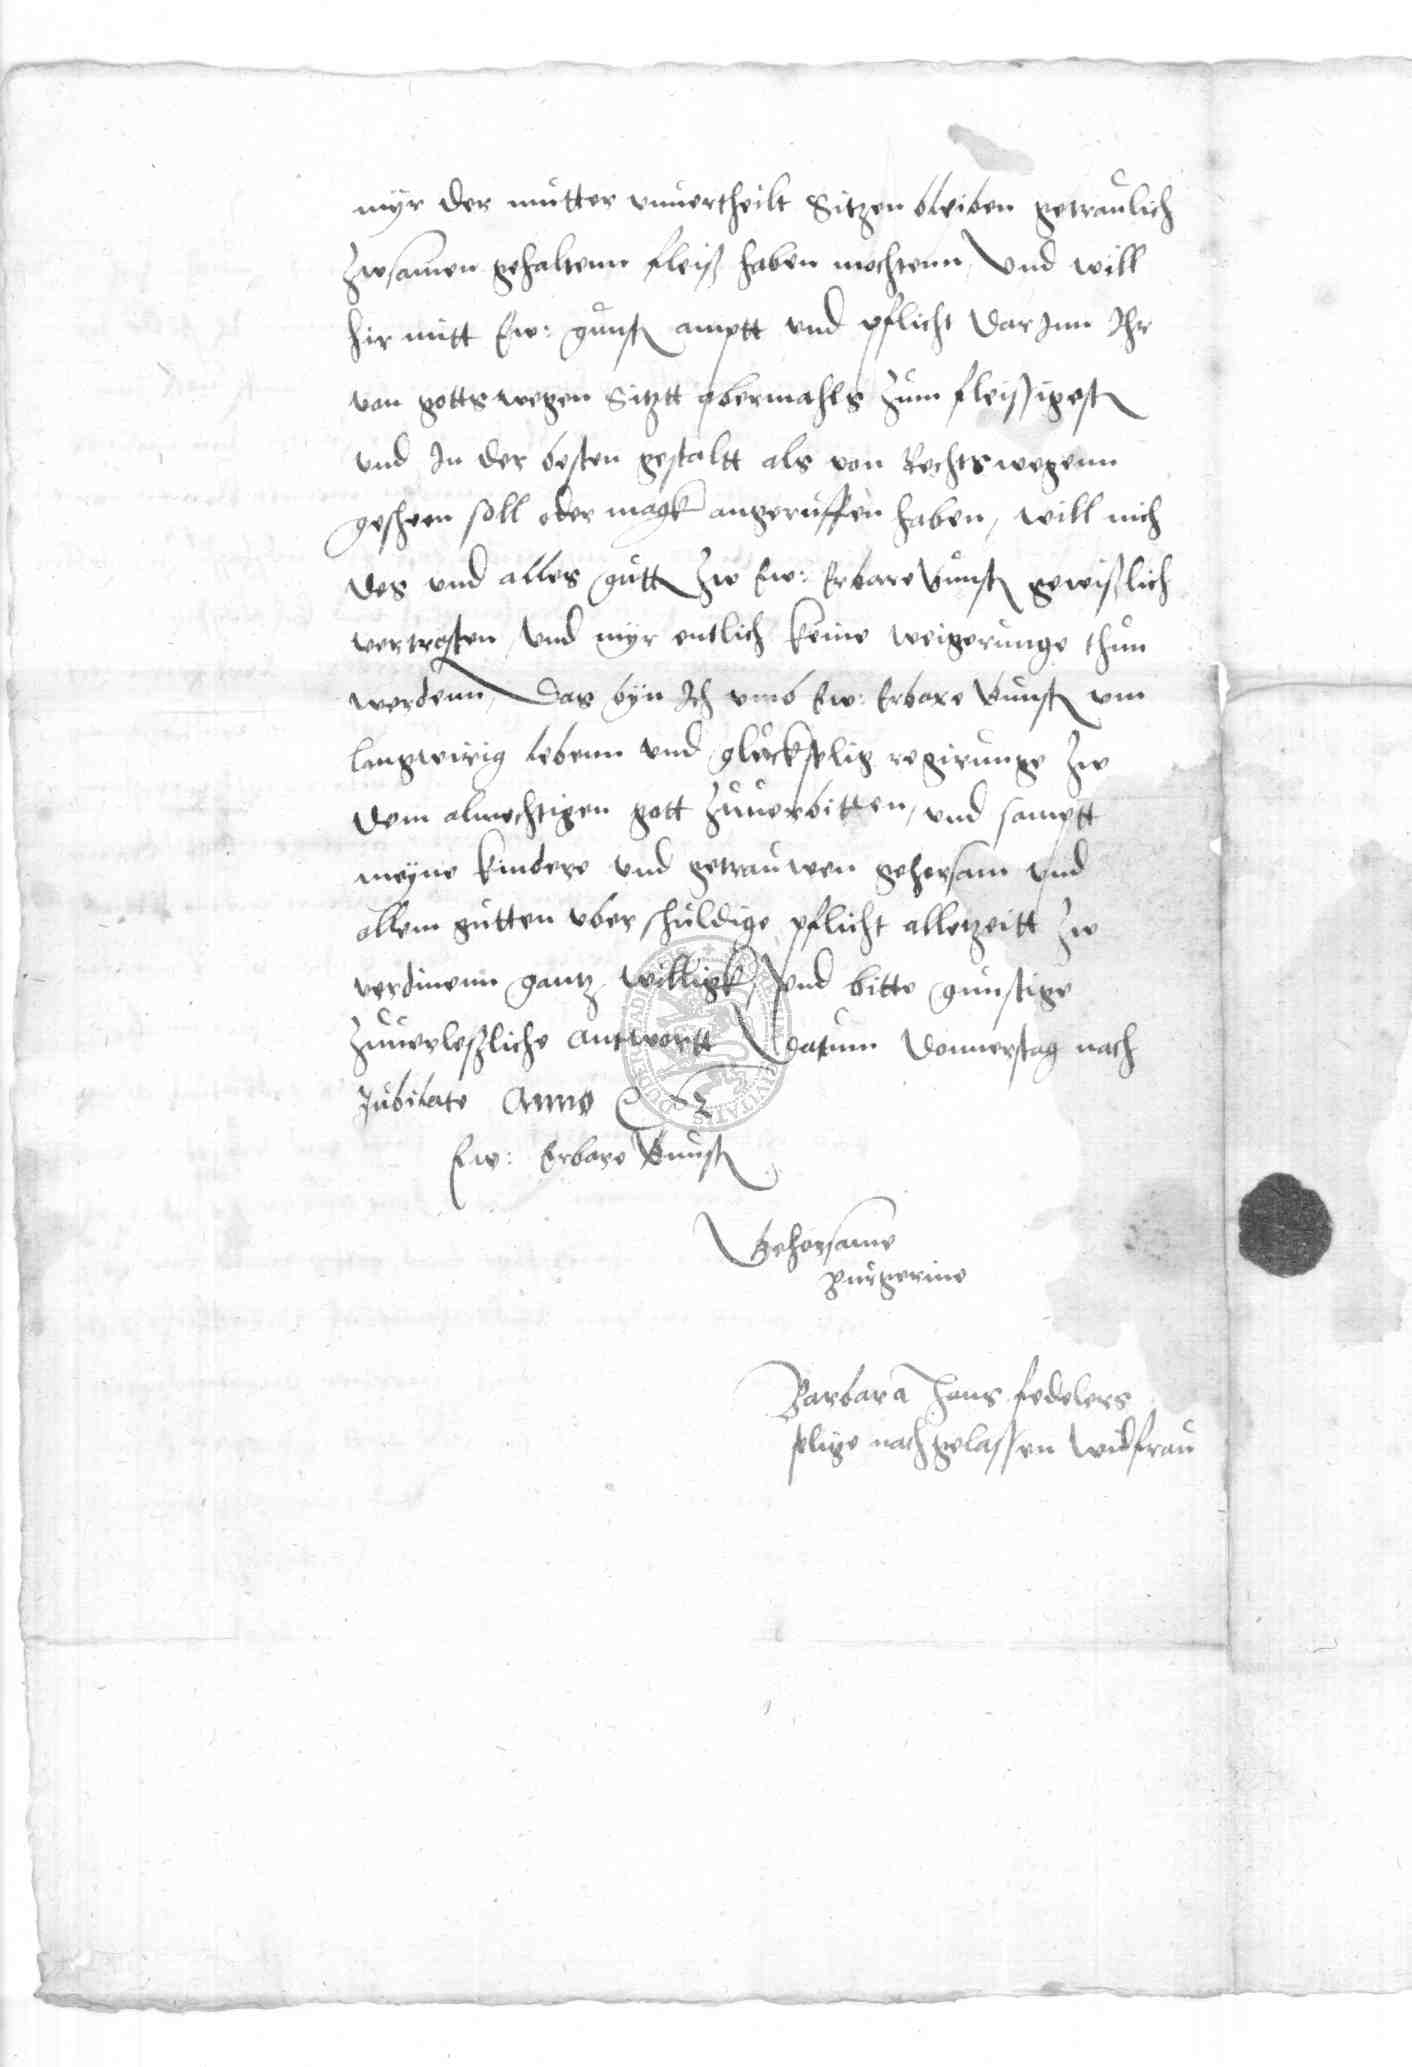 myr der mutter unuertheilt Sitzen bleiben getraulich
Zwsamen gehaltenn fleiß haben mochtenn, Und will
hir mitt Ew: gunst amptt und pflicht dar Inn Ihr
von gotts wegen Sitztt abermahls Zum fleissigest
und In der besten gestaltt als von Rechts wegenn
gescheen soll oder magk angeruffen haben, will mich
des und alles gutt Zw Ew: Erbare Gunst gewißlich
vertrosten, Und myr entlich keine weigerunge thun
werdenn, Das byn Ich umb Ew: Erbare Gunst um
langwirig lebenn und gluckselig regirunge Zw
dem almechtigen gott Zuuerbitten, und samptt
meyne kindere und getrauwen gehorsam und
allem gutten uber schuldige pflicht alletzeitt Zw
verdinenn gantz willigk, Und bitte gunstige
Zuuerleßliche antwortt Datum Donnerstag nach
Jubilate Anno
Ew: Erbare Gunst
Gehorsame
Burgerine
Barbara Hans fedelers
selige nachgelassen widfrau